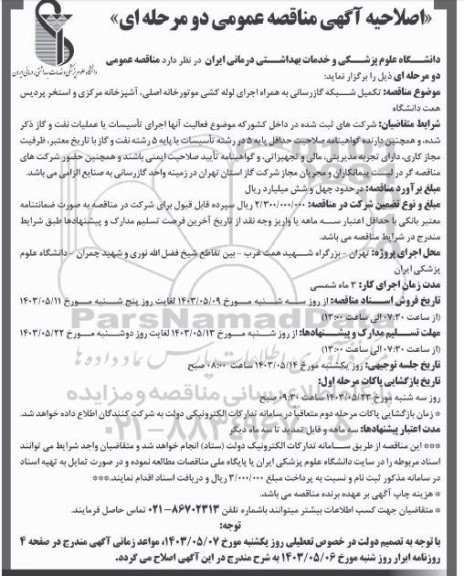 «اصلاحیه آگهی مناقصه عمومی دو مرحله ای»
دانشگاه علوم پزشکی و خدمات بهداشتی درمانی ایران
دانشگاه علوم پزشکی و خدمات بهداشتی درمانی ایران در نظر دارد مناقصه عمومی
دو مرحله ای ذیل را برگزار نماید:
موضوع مناقصه: تکمیل شبکه گازرسانی به همراه اجرای لوله کشی موتورخانه اصلی، آشپزخانه مرکزی و استخر پردیس
همت دانشگاه
شرایط متقاضیان: شرکت های ثبت شده در داخل کشور که موضوع فعالیت آنها اجرای تأسیسات یا عملیات نفت و گاز ذکر
شده، و همچنین دارنده گواهینامه صلاحیت حداقل پایه ۵ در رشته تأسیسات یا پایه ۵ رشته نفت و گاز با تاریخ معتبر، ظرفیت
مجاز کاری، دارای تجربه مدیریتی، مالی و تجهیزاتی، و گواهینامه تأیید صلاحیت ایمنی باشند و همچنین حضور شرکت های
مناقصه گر در لیست پیمانکاران و مجریان مجاز شرکت گاز استان تهران در زمینه واحد گازرسانی به صنایع الزامی می باشد.
مبلغ برآورد مناقصه: در حدود چهل و شش میلیارد ریال
مبلغ و نوع تضمین شرکت در مناقصه: ۲/۳۰۰/۰۰۰/۰۰۰ ریال سپرده قابل قبول برای شرکت در مناقصه به صورت ضمانتنامه
معتبر بانکی با حداقل اعتبار سه ماهه یا واریز وجه نقد از تاریخ آخرین فرصت تسلیم مدارک و پیشنهادها طبق شرایط
مندرج در شرایط مناقصه می باشد.
محل اجرای پروژه: تهران - بزرگراه شهید همت غرب - بین تقاطع شیخ فضل الله نوری و شهید چمران - دانشگاه علوم
پزشکی ایران
مدت زمان اجرای کار: ۳ ماه شمسی
تاریخ فروش اسناد مناقصه: از روز سه شنبه مورخ ۱۴۰۳/۰۵/۰۹ لغایت روز پنج شنبه مورخ ۱۴۰۳/۰۵/۱۱
(از ساعت ۰۷:۳۰ الی ساعت ۱۳:۰۰)
مهلت تسلیم مدارک و پیشنهادها: از روز شنبه مورخ ۱۴۰۳/۰۵/۱۳ لغایت روز دوشنبه مورخ ۱۴۰۳/۰۵/۲۲
(از ساعت ۰۷:۳۰ الی ساعت ۱۳:۰۰)
تاریخ جلسه توجیهی: روز یکشنبه مورخ ۱۴۰۳/۰۵/۱۴ ساعت ۰۸:۰۰ صبح
تاریخ بازگشایی پاکات مرحله اول:
روز سه شنبه مورخ ۱۴۰۳/۰۵/۲۳ ساعت ۰۹:۳۰ صبح
* زمان بازگشایی پاکات مرحله دوم متعاقباً در سامانه تدارکات الکترونیکی دولت به شرکت کنندگان اطلاع داده خواهد شد.
مدت اعتبار پیشنهادها: سه ماهه و قابل تمدید تا سه ماه دیگر
*** این مناقصه از طریق سامانه تدارکات الکترونیک دولت (ستاد) انجام خواهد شد و متقاضیان واجد شرایط می توانند
اسناد مربوطه را در سایت دانشگاه علوم پزشکی ایران یا پایگاه ملی مناقصات مطالعه نموده و در صورت تمایل به تهیه اسناد
در سامانه مذکور ثبت نام و نسبت به پرداخت مبلغ ۳/۰۰۰/۰۰۰ ریال و دریافت اسناد اقدام نمایند.***
* هزینه چاپ آگهی بر عهده برنده مناقصه می باشد.
* متقاضیان جهت کسب اطلاعات بیشتر میتوانند باشماره تلفن ۸۶۷۰۲۳۱۳-۰۲۱ تماس حاصل فرمایند.
توجه:
با توجه به تصمیم دولت در خصوص تعطیلی روز یکشنبه مورخ ۱۴۰۳/۰۵/۰۷، مواعد زمانی آگهی مندرج در صفحه ۴
روزنامه ابرار روز شنبه مورخ ۱۴۰۳/۰۵/۰۶ به شرح مندرج در این آگهی اصلاح می گردد.
ParsNamadData